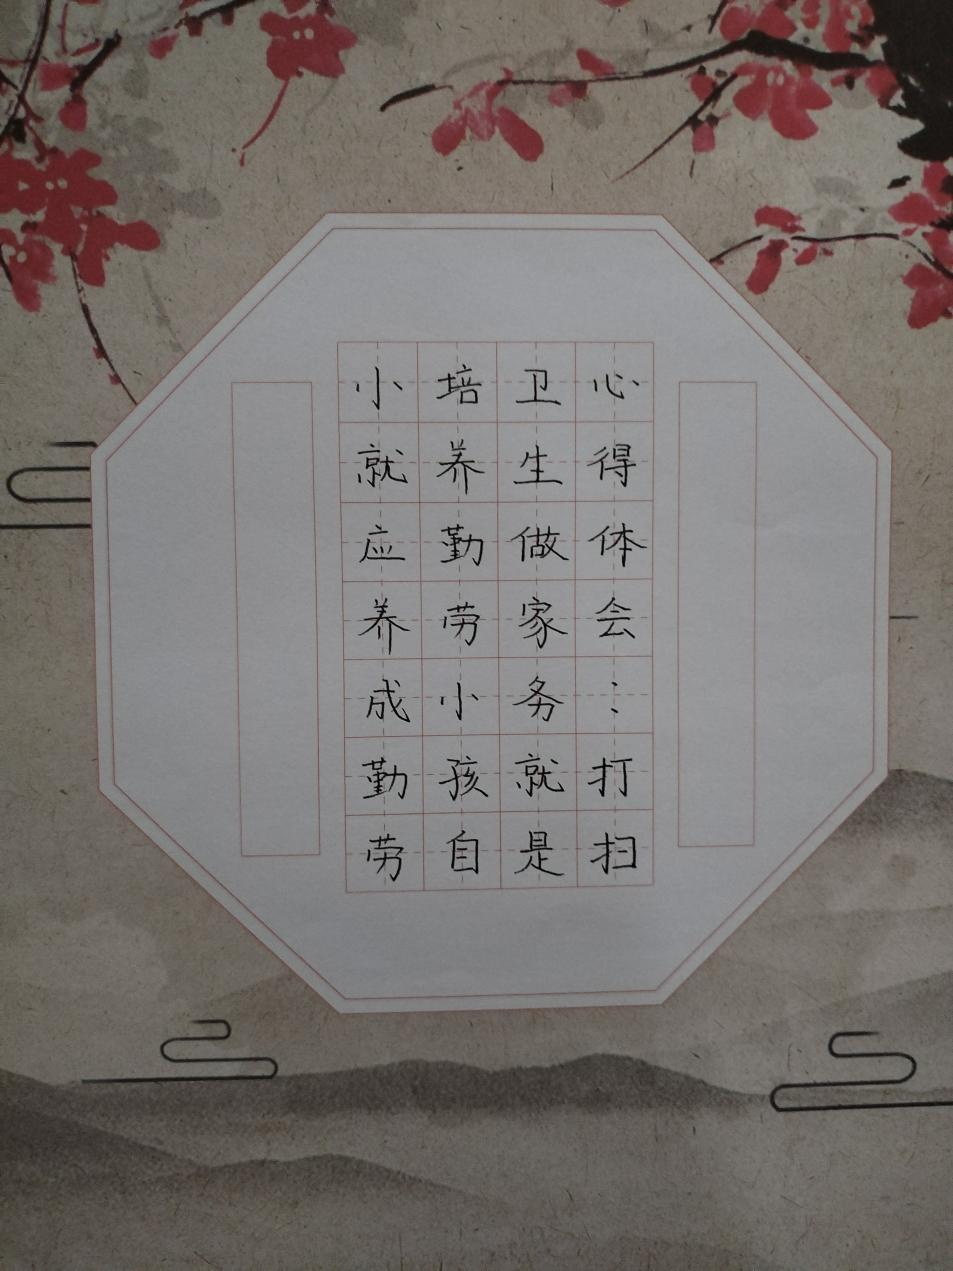 心得体会：打扫
卫生做家务就是
培养勤劳小孩自
小就应养成勤劳